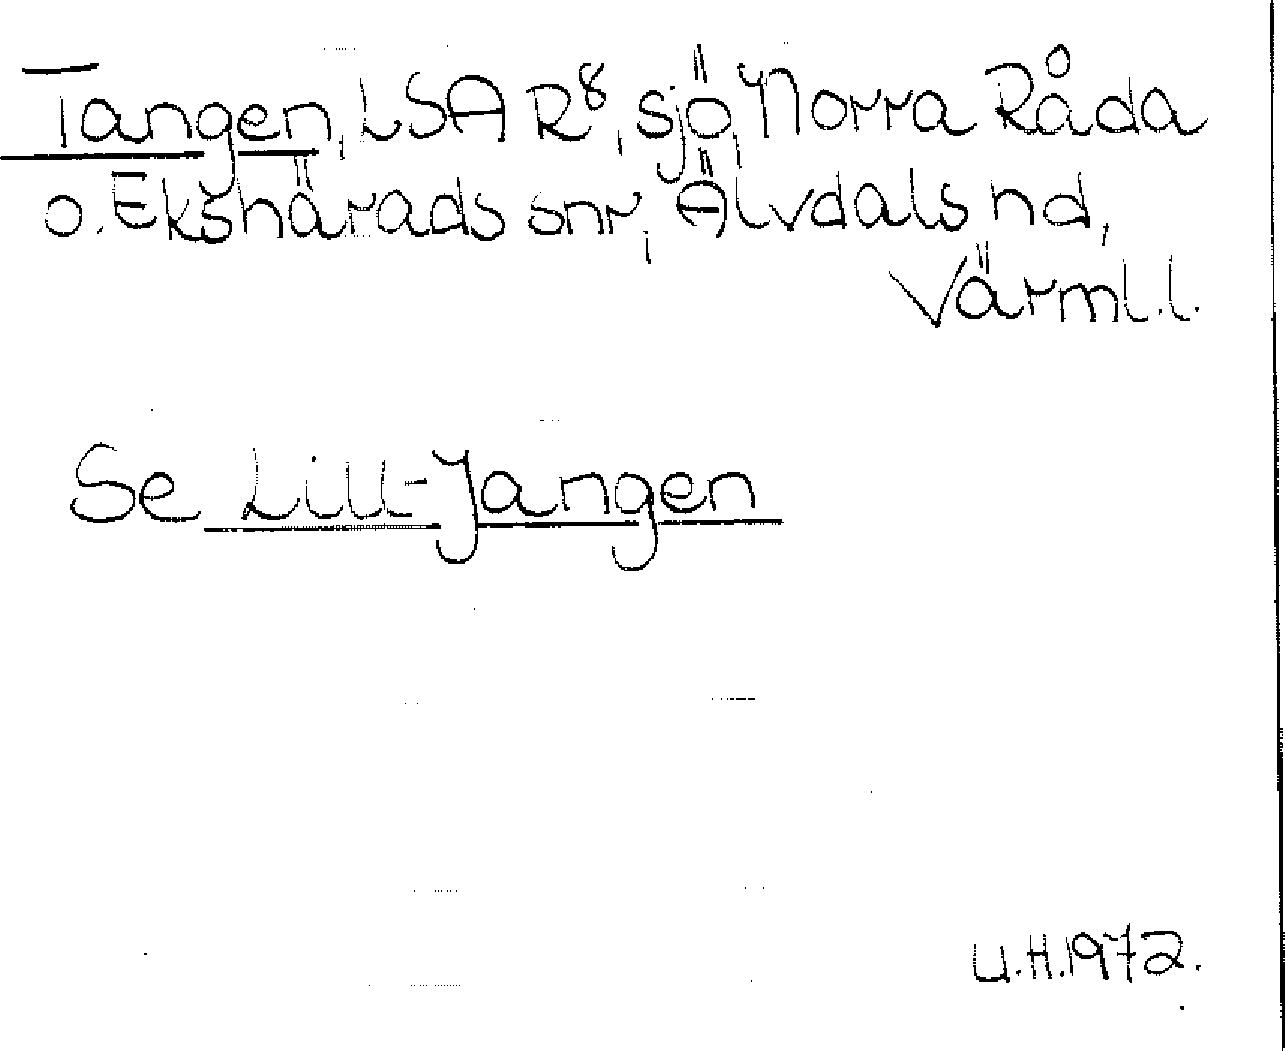 Tangen, LSA R8, sjö, Norra Råda
o. Ekshärads snr, Älvdals hd,
Värml. l.
Se Lill-Jangen
U.H. 1972.